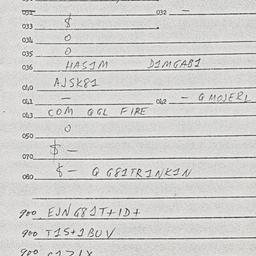 032 —
033 $
034 0
035 0
036 HASIM DIMGABI
040 AJSK81
041 — 042 - GMOJERL
043 COM GGL FIRE
050 0
070 $ —
080 $- QG81TRINKIN
900 EJNG81T+ID+
900 T1S+1BUV